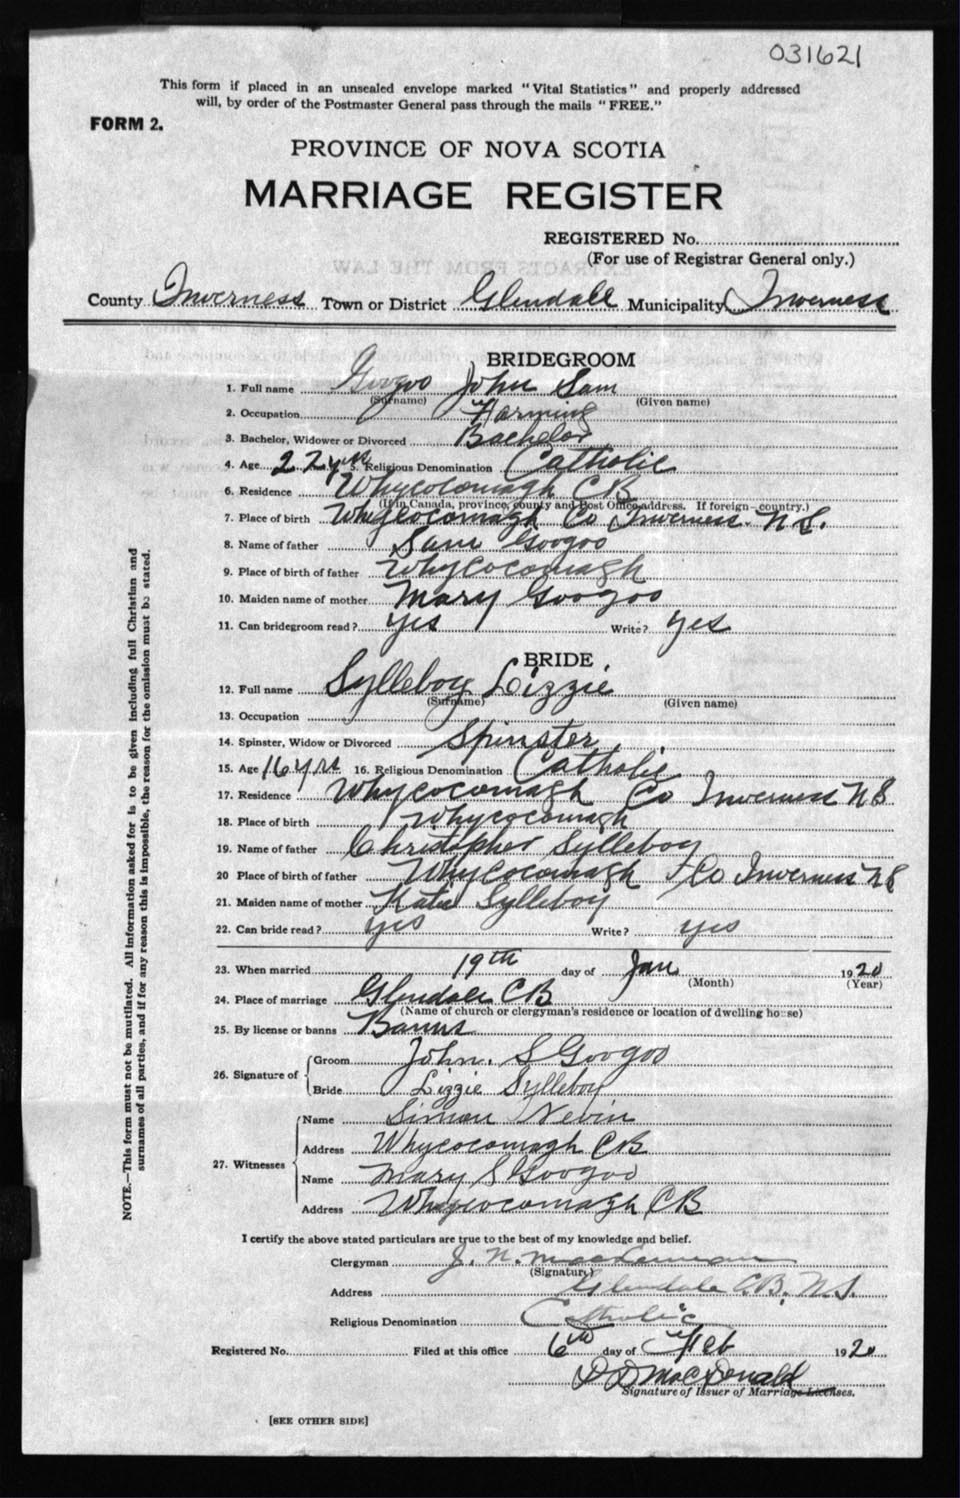 031621
This form if placed in an unsealed envelope marked "Vital Statistics" and properly addressed
will, by order of the Postmaster General pass through the mails "FREE."
FORM 2.
PROVINCE OF NOVA SCOTIA
MARRIAGE REGISTER
REGISTERED No.
(For use of Registrar General only.)
County Inverness Town or District Glendall Municipality Inverness
BRIDEGROOM
1. Full name Googoo John Sam
(Surname) (Given name)
2. Occupation Farming
3. Bachelor, Widower or Divorced Bachelor
4. Age 22 yrs 5. Religious Denomination Catholic
6. Residence Whycocomagh CB
(If in Canada, province, county and Post Office address. If foreign—country.)
7. Place of birth Whycocomagh Co Inverness N.S.
8. Name of father Sam Googoo
9. Place of birth of father Whycocomagh
10. Maiden name of mother Mary Googoo
11. Can bridegroom read? yes Write? yes
BRIDE
12. Full name Sylleboy Lizzie
(Surname) (Given name)
13. Occupation
14. Spinster, Widow or Divorced Spinster
15. Age 16 yrs 16. Religious Denomination Catholic
17. Residence Whycocomagh Co Inverness N S
18. Place of birth Whycocomagh
19. Name of father Christopher Sylleboy
20 Place of birth of father Whycocomagh Co Inverness N S
21. Maiden name of mother Katie Sylleboy
22. Can bride read? yes Write? yes
23. When married 19th day of Jan 1920
(Month) (Year)
24. Place of marriage Glendale CB
(Name of church or clergyman's residence or location of dwelling house)
25. By license or banns Banns
26. Signature of Groom John. S Googoo
Bride Lizzie Sylleboy
27. Witnesses Name Simon Nevin
Address Whycocomagh CB
Name Mary S Googoo
Address Whycocomagh CB
I certify the above stated particulars are true to the best of my knowledge and belief.
Clergyman J. N.
(Signature)
Address Glendale C.B. N.S.
Religious Denomination Catholic
Registered No. Filed at this office 6th day of Feb 1920
D D MacDonald
Signature of Issuer of Marriage Licenses.
[SEE OTHER SIDE]
NOTE.—This form must not be mutilated. All information asked for is to be given including full Christian and
surnames of all parties, and if for any reason this is impossible, the reason for the omission must be stated.